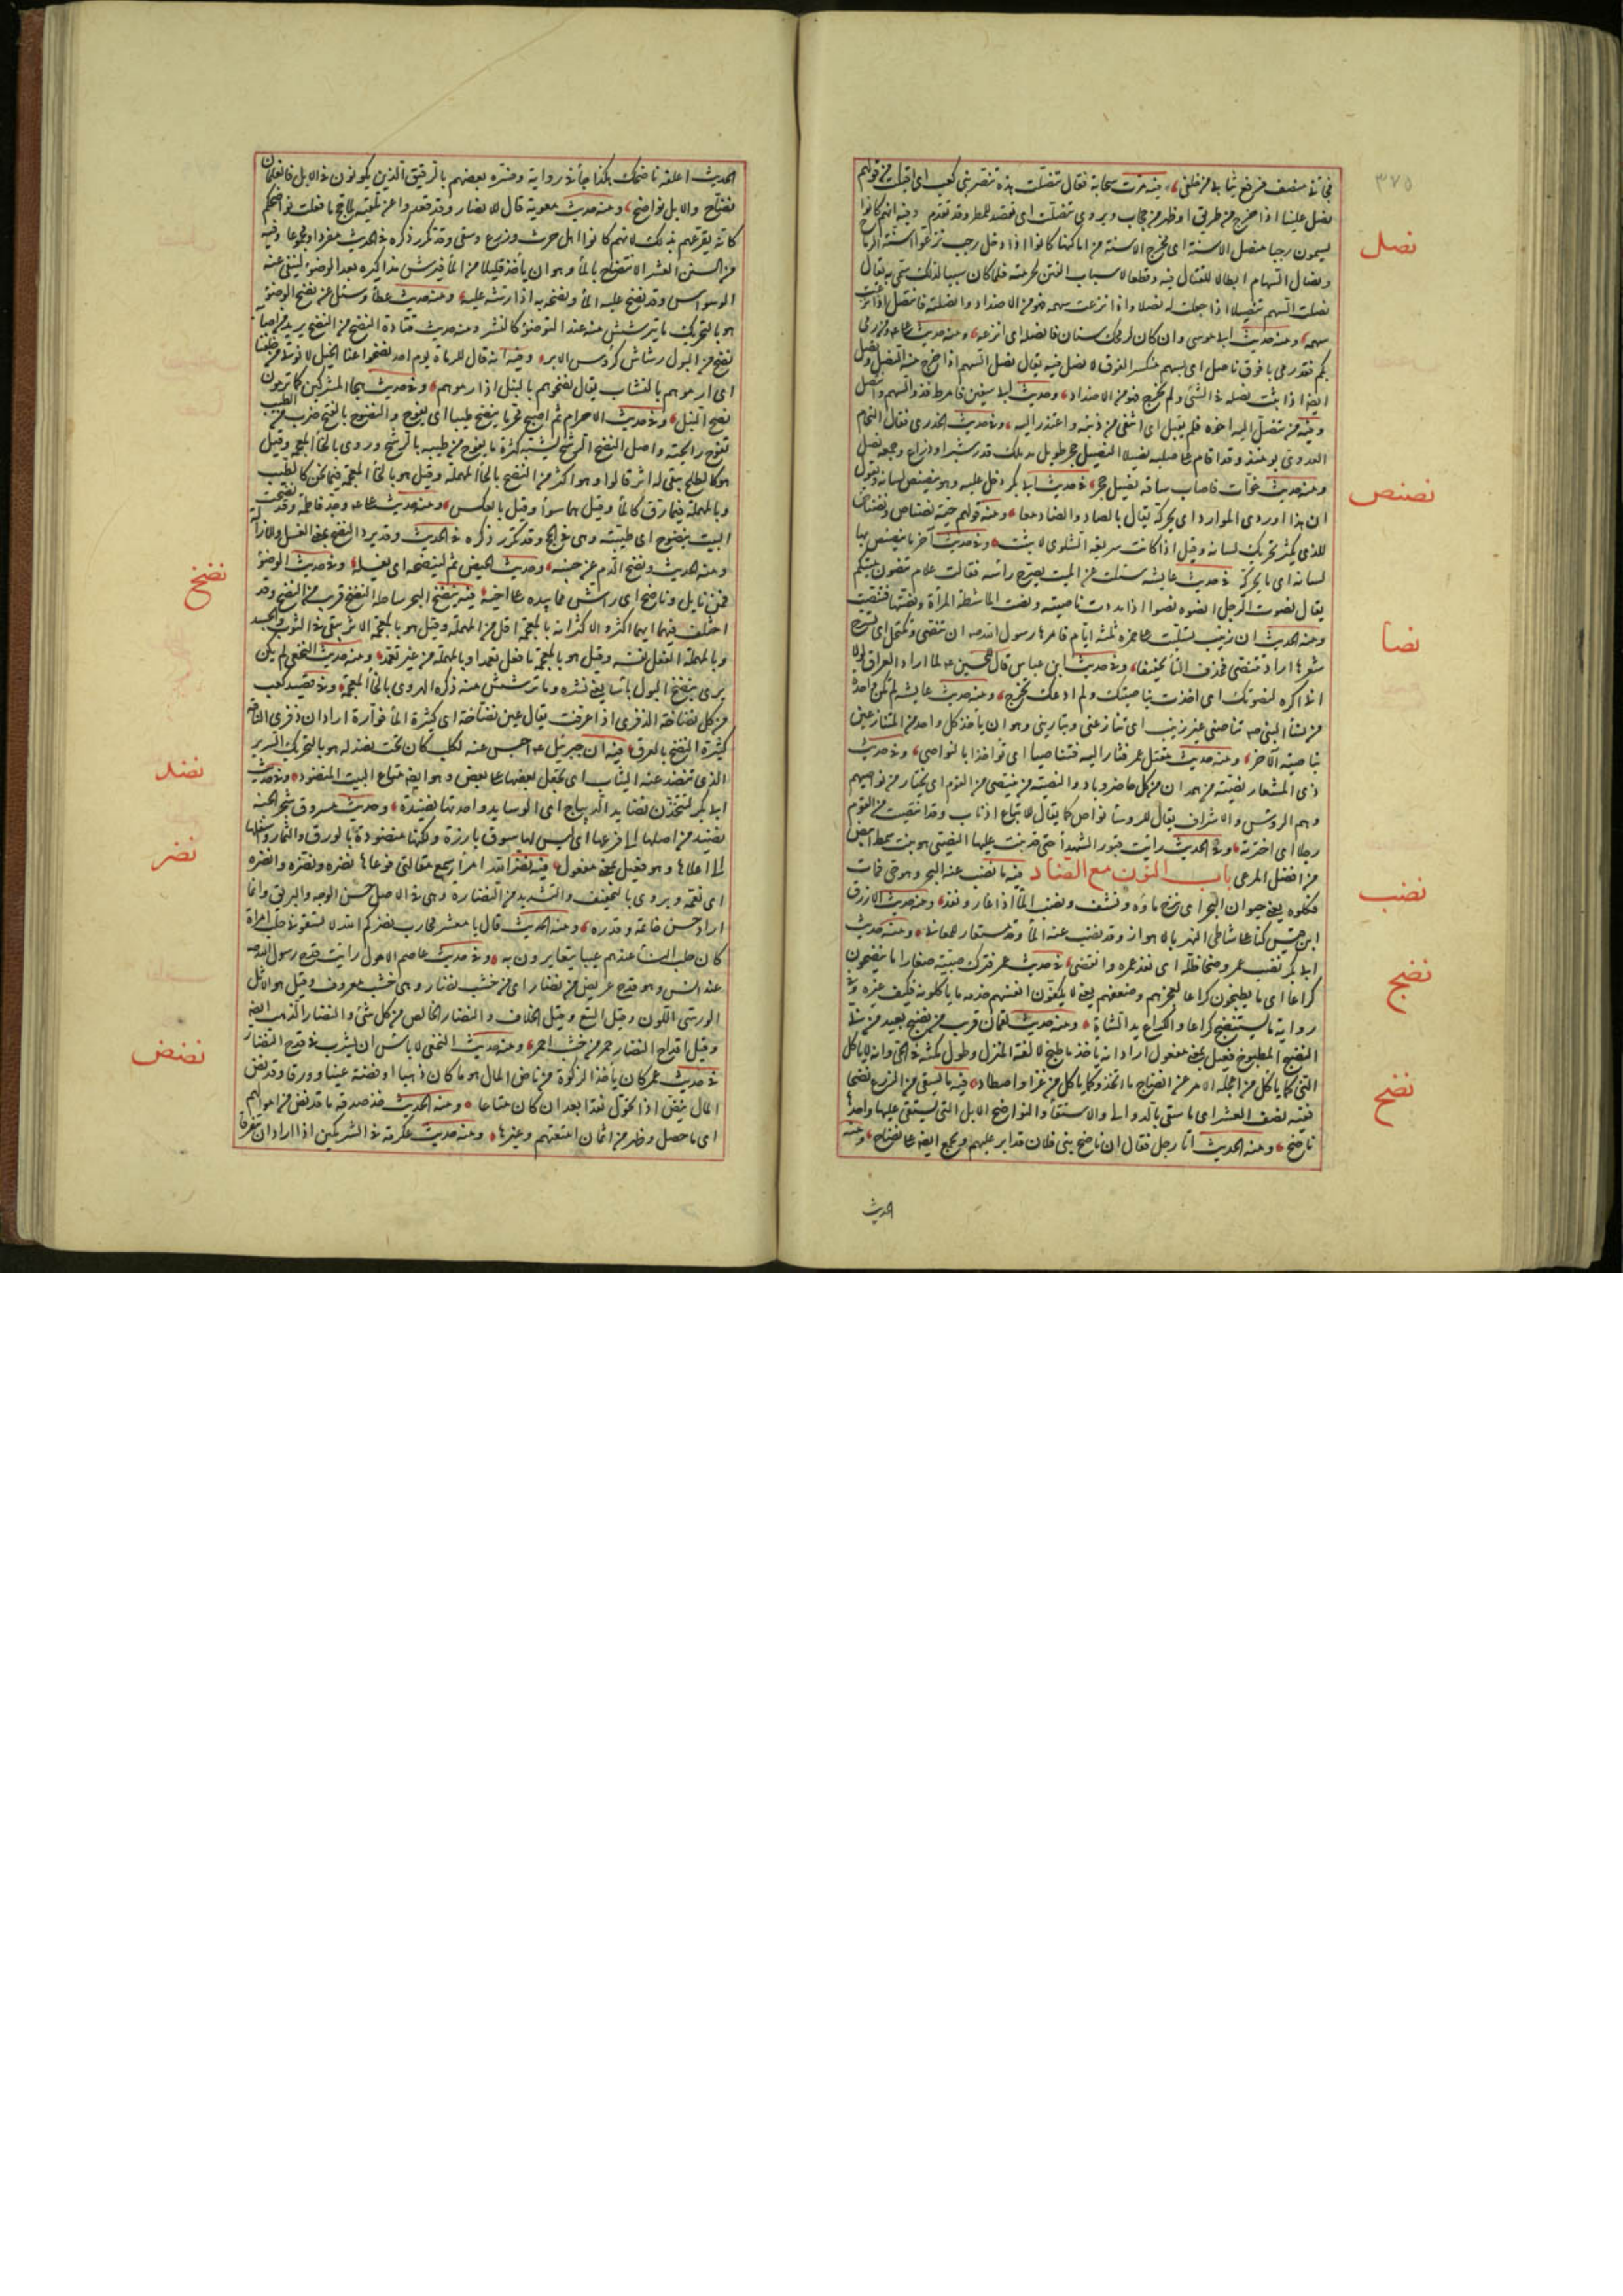 ٣٧٥
فجأني منصف فرفع ثيابي من خلفي، فيه مرت سحابة فقال تنصلت هذه تنصر بني كعب اي اقبلت من قولهم
نصل علينا اذا خرج من طريق او ظهر من حجاب ويروى تنصلت اي تقصد للمطر وقد تقدم وفيه انهم كانوا
يسمون رجبا منصل الاسنة اي مخرج الاسنة من اماكنها كانوا اذا دخل رجب نزعوا اسنة الرماح
ونصال السهام ابطالا للقتال فيه وقطعا لاسباب الفتن لحرمته فلما كان سببا لذلك سمي به يقال
نصلت السهم تنصيلا اذا جعلت له نصلا واذا نزعت سهمه فهو من الاضداد وانصلته فانتصل اذا نزعت
سهمه ومنه حديث ابي موسى وان كان لرمحك سنان فانصله اي انزعه، ومنه حديث علي ومن رمى
بكم فقد رمى بافوق ناصل اي بسهم منكسر الفوق لا نصل فيه يقال نصل السهم اذا خرج منه النصل ونصل
ايضا اذا ثبت نصله في الشئ ولم يخرج فهو من الاضداد، وحديث ابي سفين فامرط قذذ السهم وانتصل
وفيه من تنصل اليه اخوه فلم يقبل اي انتفى من ذنبه واعتذر اليه، وفي حديث الخدري فقام النحام
العدوي يومئذ وقد اقام على صلبه نصيلا النصيل حجر طويل مدملك قدر شبر او ذراع وجمعه نصل
ومنه حديث خوات فاصاب ساقه نصيل حجر، في حديث ابي بكر دخل عليه وهو ينصنص لسانه ويقول
ان هذا اوردني الموارد اي يحركه يقال بالصاد والضاد معا، ومنه قولهم حية نصناص ونضناض
للذي يكثر تحريك لسانه وقيل اذا كانت سريعة التلوي لا يثبت، وفي حديث آخر ما ينصنص بها
لسانه اي ما يحركه في حديث عايشة سئلت عن الميت يسرح راسه فقالت علام تنصون ميتكم
يقال نصوت الرجل انصوه نصوا اذا مددت ناصيته ونصت الماشطة المرأة ونصتها فتنصت
ومنه الحديث ان زينب تسلبت على حمزة ثلثة ايام فامرها رسول الله صه ان تنصى وتكتحل اي تسرح
شعرها اراد تتنصى فحذف التاء تخفيفا، وفي حديث ابن عباس قال للحسين عم لما اراد العراق لولا
اني اكره لنصوتك اي اخذت بناصيتك ولم ادعك تخرج، ومنه حديث عايشة لم تكن واحدة
من نساء النبي صه تناصيني غير زينب اي تنازعني وتباريني وهو ان يأخذ كل واحد من المتنازعين
بناصية الآخر، ومنه حديث مقتل عمر فثار اليه فتناصيا اي تواخذا بالنواصي، وفي حديث
ذي المشعار نصية من همدان من كل حاضر وباد والنصية من ينتصى من القوم اي يختار من نواصيهم
وهم الروس والاشراف يقال للروسا نواص كما يقال للاتباع اذناب وقد انتصيت من القوم
رجلا اي اخترته، وفي الحديث رايت قبور الشهدا جثى قد نبت عليها النصي هو نبت سبط ابيض
من افضل المرعى باب النون مع الضاد فيه ما نضب عنه البحر وهو حي فمات
فكلوه يعني حيوان البحر اي نزح ماؤه ونشف ونضب الماء اذا غار ونفد، ومنه حديث الازرق
ابن قيس كنا على شاطئ النهر بالاهواز وقد نضب عنه الماء وقد يستعار للمعاني، ومنه حديث
ابي بكر نضب عمره وضحا ظله اي نفد عمره وانقضى، في حديث عمر فترك صبية صغارا ما ينضجون
كراعا اي ما يطبخون كراعا لعجزهم وصغرهم يعني لا يكفون انفسهم خدمة ما ياكلونه فكيف غيره وفي
رواية ما يستنضج كراعا والكراع يد الشاة، ومنه حديث لقمان قريب من نضيج بعيد من ني
النضيج المطبوخ فعيل بمعنى مفعول اراد انه يأخذ ما طبخ لالفة المنزل وطول مكثه في الحي وانه لا ياكل
الني كما ياكل من اعجله الامر عن انضاج ما اتخذ وكما ياكل من غزا واصطاد، فيه ما يسقى من الزرع نضحا
ففيه نصف العشر اي ما سقي بالدوالي والاستقاء والنواضح الابل التي يستقى عليها واحدها
ناضح، ومنه الحديث اتاه رجل فقال ان ناضح بني فلان قد ابد عليهم ويجمع ايضا على نضاح، ومنه
الحديث
نصل
نصنص
نصا
نضب
نضج
نضح
الحديث اعلفه ناضحك هكذا جاء في رواية وفسره بعضهم بالرقيق الذين يكونون في الابل فالغلمان
نضاح والابل نواضح، ومنه حديث معوية قال للانصار وقد قعدوا عن تلقيه لما حج ما فعلت نواضحكم
كانه يقرعهم بذلك لانهم كانوا اهل حرث وزرع وسقي وقد تكرر ذكره في الحديث مفردا ومجموعا وفيه
من السنن العشر الانتضاح بالماء وهو ان يأخذ قليلا من الماء فيرش مذاكيره بعد الوضوء لينفي عنه
الوسواس وقد نضح عليه الماء ونضحه به اذا رشه عليه، ومنه حديث عطاء وسئل عن نضح الوضوء
هو بالتحريك ما يترشش منه عند التوضؤ كالنشر ومنه حديث قتادة النضح من النضح يريد من اصابه
نضح من البول رشاش كرؤس الابر، وفيه انه قال للرماة يوم احد انضحوا عنا الخيل لا نؤتى من خلفنا
اي ارموهم بالنشاب يقال نضحوهم بالنبل اذا رموهم، وفي حديث هجا المشركين كما ترمون
نضح النبل، وفي حديث الاحرام ثم اصبح محرما ينضح طيبا اي يفوح والنضوح بالفتح ضرب من الطيب
تفوح رايحته واصل النضح الرشح فشبه كثرة ما يفوح من طيبه بالرشح وروى بالخاء المعجمة وقيل
هو كاللطخ يبقى له اثر قالوا وهو اكثر من النضح بالحاء المهملة وقيل هو بالخاء المعجمة فيما ثخن كالطيب
وبالمهملة فيما رق كالماء وقيل هما سواء وقيل بالعكس، ومنه حديث علي عم وجد فاطمة وقد نضحت
البيت بنضوح اي طيبته وهي في الحج وقد تكرر ذكره في الحديث وقد يرد النضح بمعنى الغسل والازالة
ومنه الحديث ونضح الدم عن جبينه، وحديث الحيض ثم لتنضحه اي تغسله، وفي حديث الوضوء
فمن نايل وناضح اي راش مما بيده على اخيه، فيه ينضخ البحر ساحله النضخ قريب من النضح وقد
اختلف فيهما ايهما اكثر والاكثر انه بالمعجمة اقل من المهملة وقيل هو بالمعجمة الاثر يبقى في الثوب والجسد
وبالمهملة الفعل نفسه وقيل هو بالمعجمة ما فعل تعمدا وبالمهملة من غير تعمد، ومنه حديث النخعي لم يكن
يرى بنضخ البول باسا يعني نشره وما ترشش منه ذكره الهروي بالخاء المعجمة، وفي قصيد كعب
من كل نضاخة الذفرى اذا عرقت يقال عين نضاخة اي كثيرة الماء فوارة اراد ان ذفرى الناقة
كثيرة النضخ بالعرق، فيه ان جبرئيل عم احتبس عنه لكلب كان تحت نضد له هو بالتحريك السرير
الذي تنضد عنه الثياب اي يجعل بعضها على بعض وهو ايضا متاع البيت المنضود، وفي حديث
ابي بكر لتتخذن نضايد الديباج اي الوسايد واحدتها نضيدة، وحديث مسروق شجر الجنة
نضيد من اصلها الى فرعها اي ليس لها سوق بارزة ولكنها منضودة بالورق والثمار من اسفلها
الى اعلاها وهو فعيل بمعنى مفعول، فيه نضر الله امرأ سمع مقالتي فوعاها نضره ونضره وانضره
اي نعمه ويروى بالتخفيف والتشديد من النضارة وهي في الاصل حسن الوجه والبريق وانما
اراد حسن خلقه وقدره، ومنه الحديث قال يا معشر محارب نضركم الله لا تسقوني حلب امراة
كان حلب النساء عندهم عيبا يتعايرون به، وفي حديث عاصم الاحول رايت قدح رسول الله صه
عند انس وهو قدح عريض من نضار اي من خشب نضار وهي خشب معروف وقيل هو الاثل
الورسي اللون وقيل النبع وقيل الخلاف والنضار الخالص من كل شئ والنضار الذهب ايضا
وقيل اقداح النضار حمر من خشب احمر، ومنه حديث النخعي لا باس ان يشرب في قدح النضار
في حديث عمر كان يأخذ الزكوة من ناض المال هو ما كان ذهبا او فضة عينا وورقا وقد نض
المال ينض اذا تحول نقدا بعد ان كان متاعا، ومنه الحديث خذ صدقة ما قد نض من اموالهم
اي ما حصل وظهر من اثمان امتعتهم وغيرها، ومنه حديث عكرمة في الشريكين اذا ارادا ان يتفرقا
نضخ
نضد
نضر
نضض